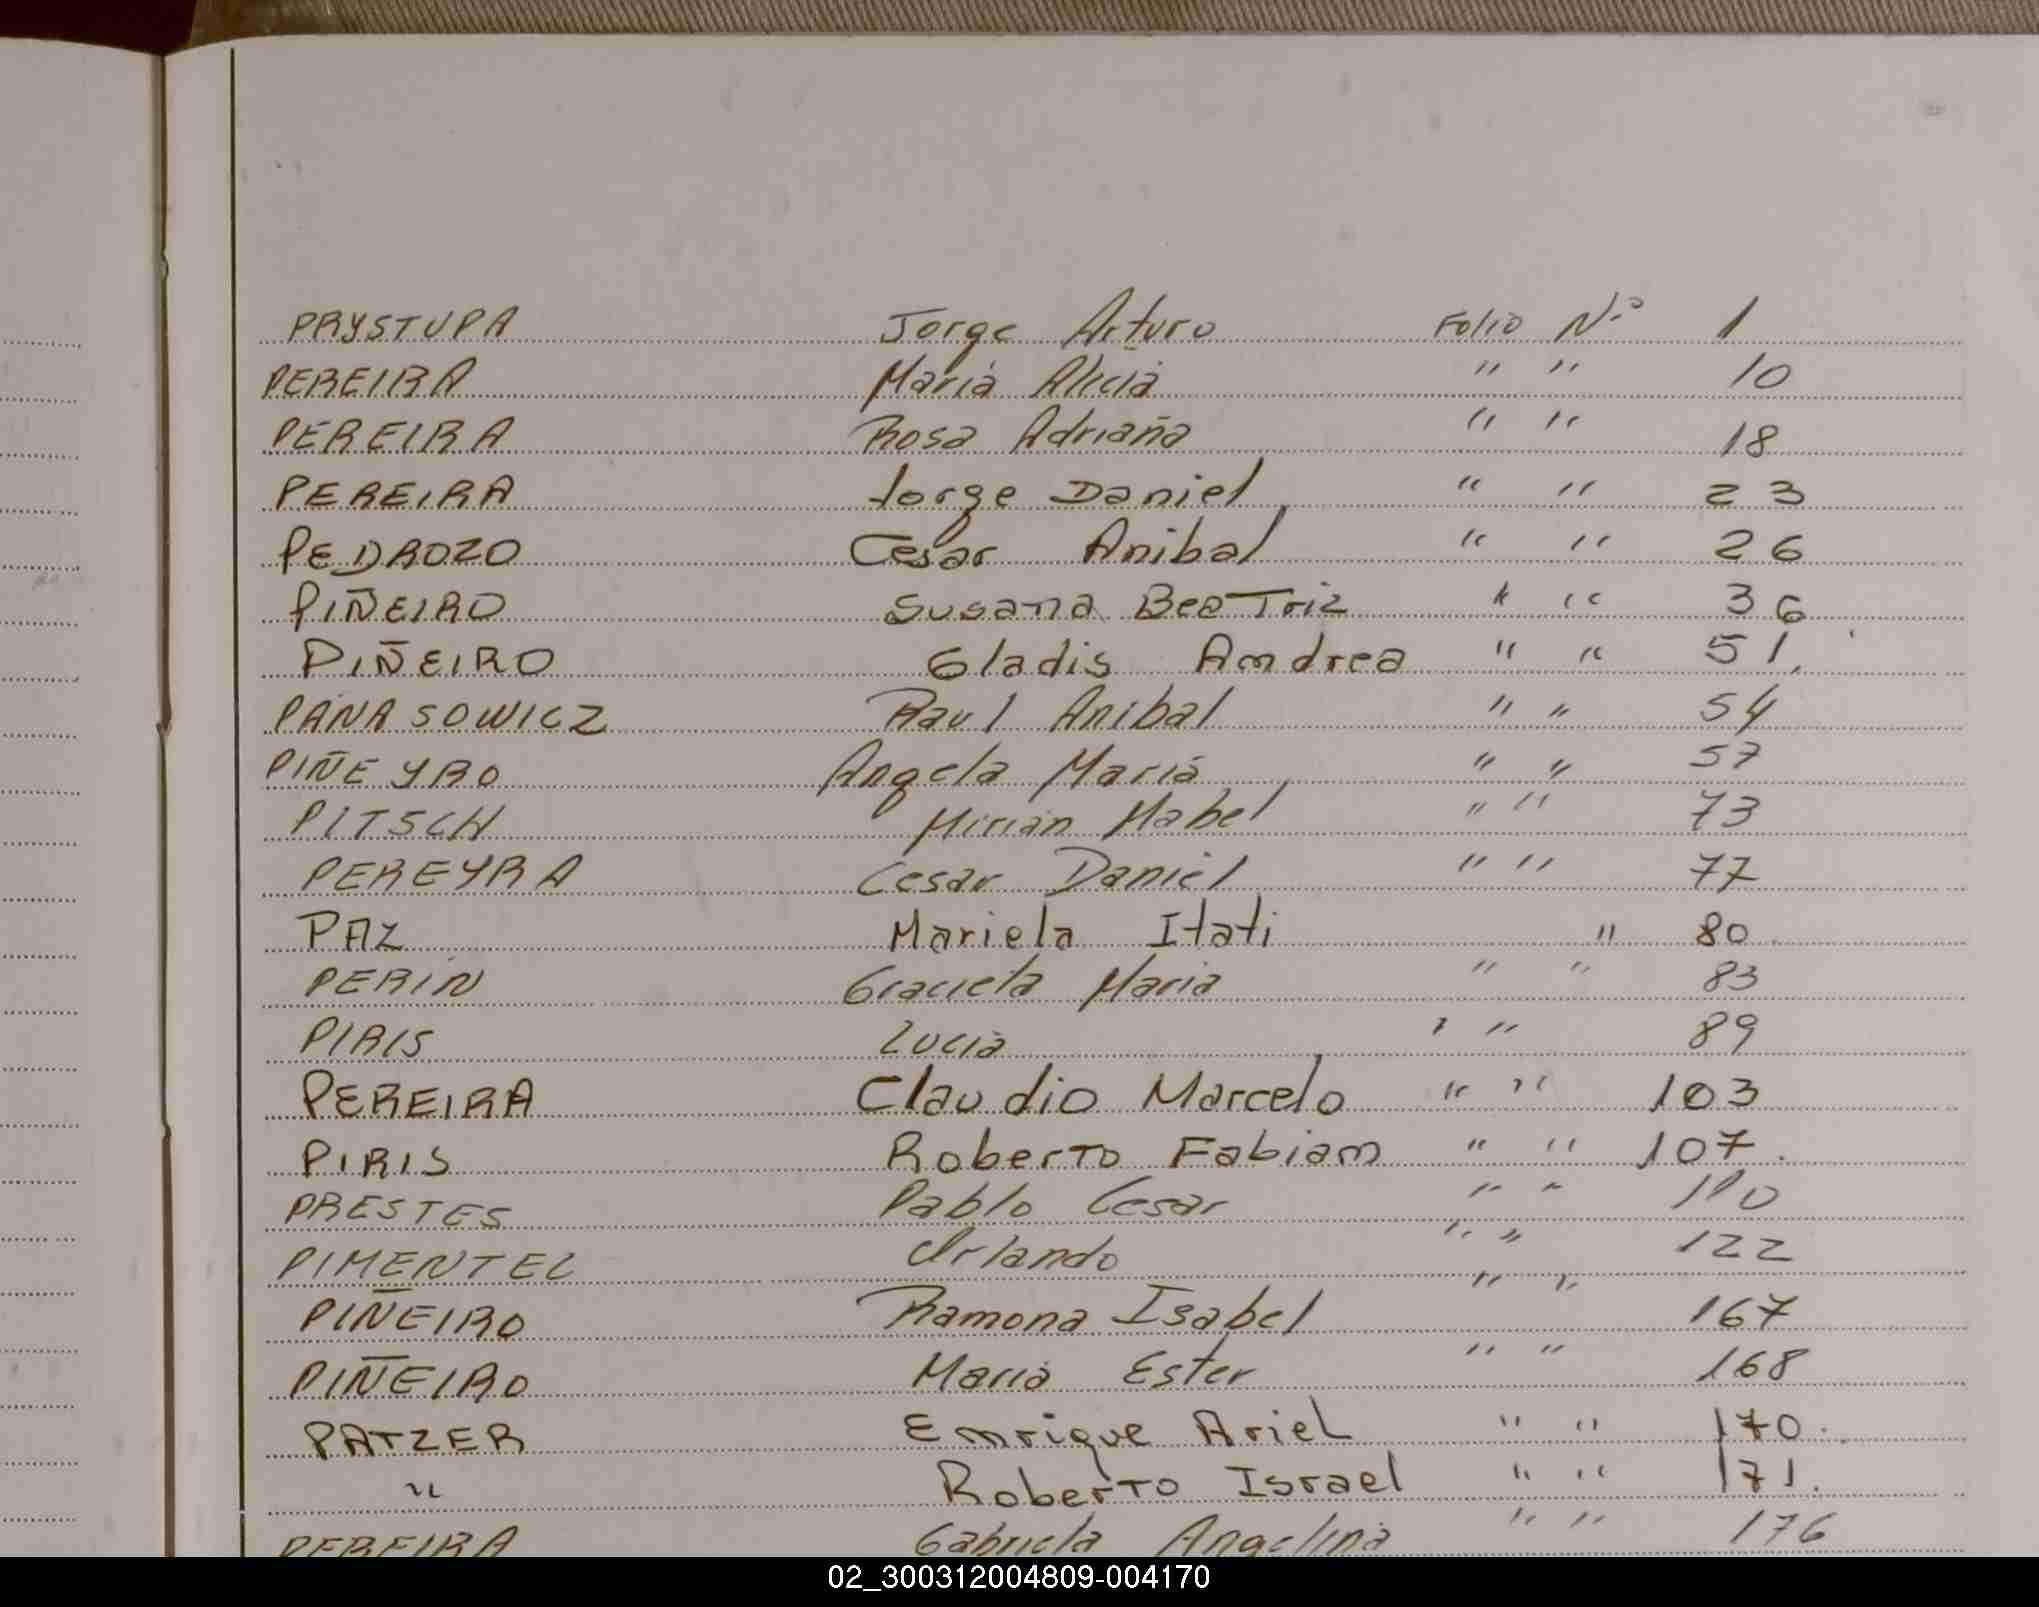 PRYSTUPA Jorge Arturo Folio N.º 1
PEREIRA Maria Alicia " " 10
PEREIRA Rosa Adriana " " 18
PEREIRA Jorge Daniel " " 23
PEDROZO Cesar Anibal " " 26
PIÑEIRO Susana Beatriz " " 36
PIÑEIRO Gladis Amdrea " " 51.
PANASOWICZ Raul Anibal " " 54
PIÑEYRO Angela Maria " " 57
PITSCH Mirian Mabel " " 73
PEREYRA Cesar Daniel " " 77
PAZ Mariela Itati " 80
PERIN Graciela Maria " " 83
PIRIS Lucia " " 89
PEREIRA Claudio Marcelo " " 103
PIRIS Roberto Fabiam " " 107.
PRESTES Pablo Cesar " " 110
PIMENTEL Orlando " " 122
PIÑEIRO Ramona Isabel " " 167
PIÑEIRO Maria Ester " " 168
PATZER Emrique Ariel " " 170.
" Roberto Israel " " 171.
PEREIRA Gabriela Angelina " " 176
02_300312004809-004170